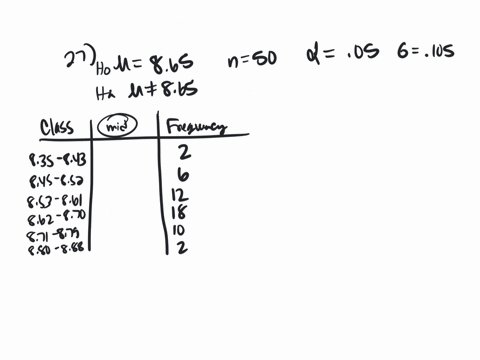 27) H₀ μ = 8.65 n=50 α = .05 σ = .105
Ha μ ≠ 8.65
Class mid Frequency
8.35 - 8.43 2
8.45 - 8.52 6
8.53 - 8.61 12
8.62 - 8.70 18
8.71 - 8.79 10
8.80 - 8.88 2